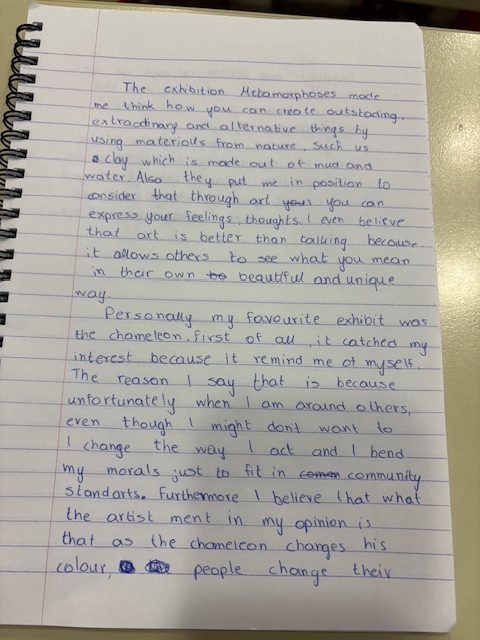 The exhibition Metamorphoses made
me think how you can create outstading,
extraordinary and alternative things by
using materials from nature. Such us
clay which is made out of mud and
water. Also they put me in position to
consider that through art you can
express your feelings, thoughts. I even believe
that art is better than talking because
it allows others to see what you mean
in their own beautiful and unique
way.
Personally my favourite exhibit was
the chameleon. First of all, it catched my
interest because it remind me of myself.
The reason I say that is because
unfortunately when I am around others,
even though I might don't want to
I change the way I act and I bend
my morals just to fit in community
standarts. Furthermore I believe that what
the artist ment in my opinion is
that as the chameleon changes his
colour, people change their